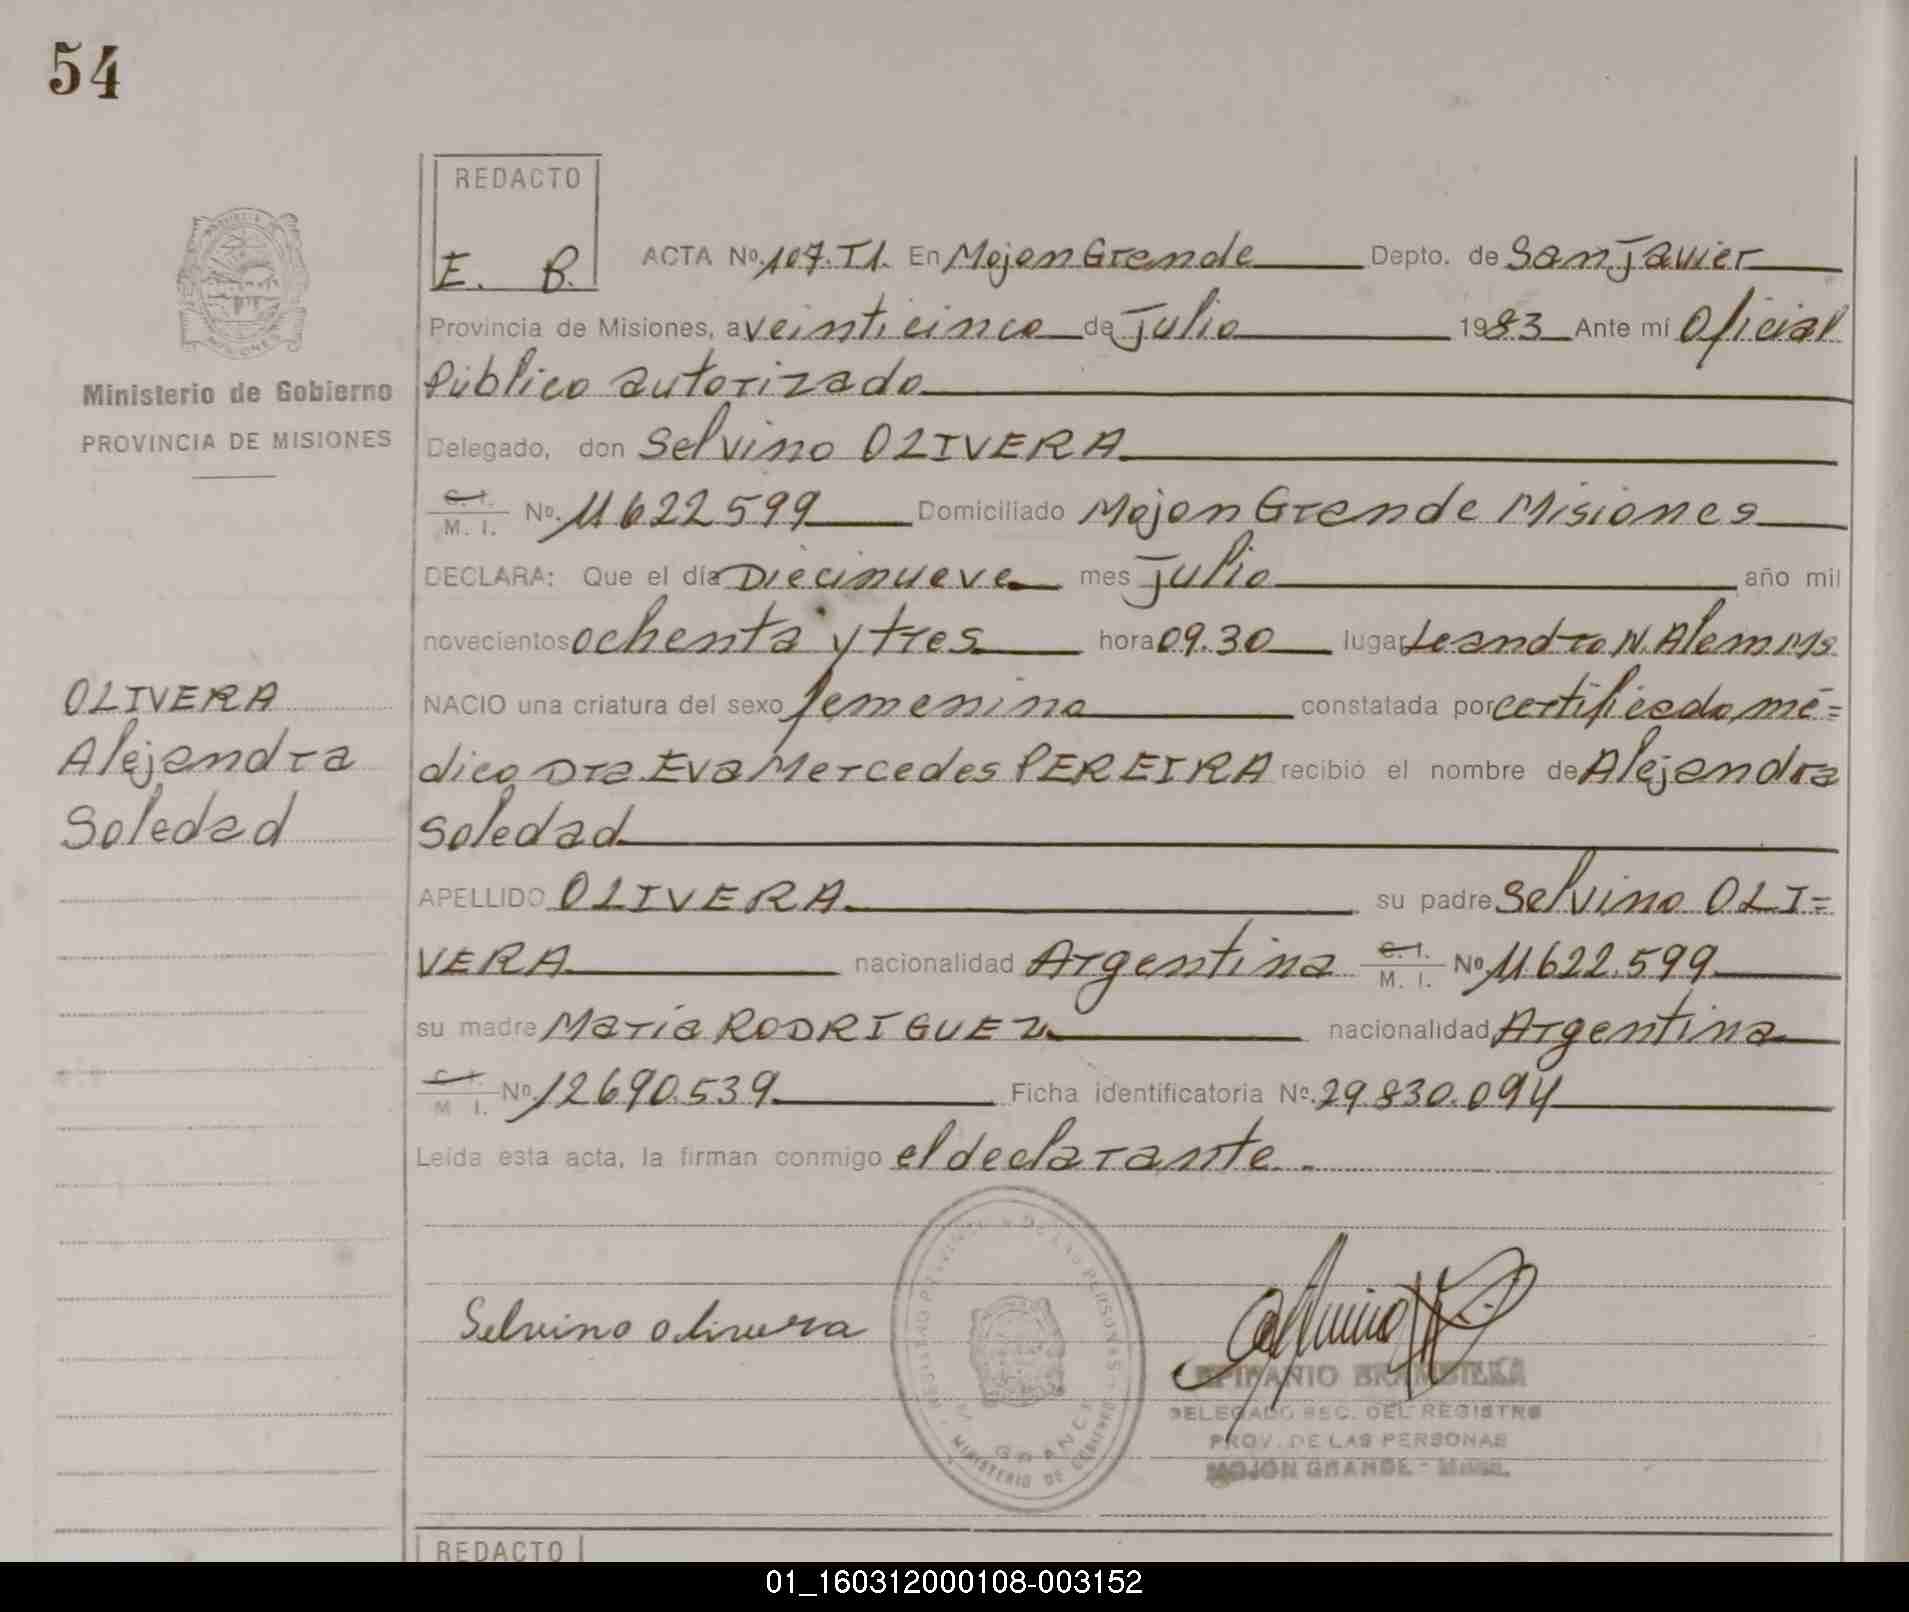 54
REDACTO
E. B.
ACTA Nº 107. T1. En Mojon Grande Depto. de San Javier
Provincia de Misiones, a veinticinco de Julio 1983 Ante mí Oficial
Público autorizado
Ministerio de Gobierno
PROVINCIA DE MISIONES
Delegado, don Selvino OLIVERA
C. I.
M. I. Nº 11622599 Domiciliado Mojon Grande Misiones
DECLARA: Que el día Diecinueve mes Julio año mil
novecientos ochenta y tres hora 09.30 lugar Leandro N. Alem Ms.
OLIVERA
Alejandra
Soledad
NACIO una criatura del sexo femenino constatada por certificado mé=
dico Dra Eva Mercedes PEREIRA recibió el nombre de Alejandra
Soledad
APELLIDO OLIVERA su padre Selvino OLI=
VERA nacionalidad Argentina C. I. M. I. Nº 11.622.599
su madre María RODRIGUEZ nacionalidad Argentina
C. I. M I. Nº 12690.539 Ficha identificatoria Nº 29.830.094
Leída esta acta, la firman conmigo el declarante.
Selvino olivera
MINISTERIO DE GOBIERNO
GRANDE
EPIFANIO BRAMBILLA
DELEGADO SEC. DEL REGISTRO
PROV. DE LAS PERSONAS
MOJON GRANDE - Mnes.
REDACTO
01_160312000108-003152